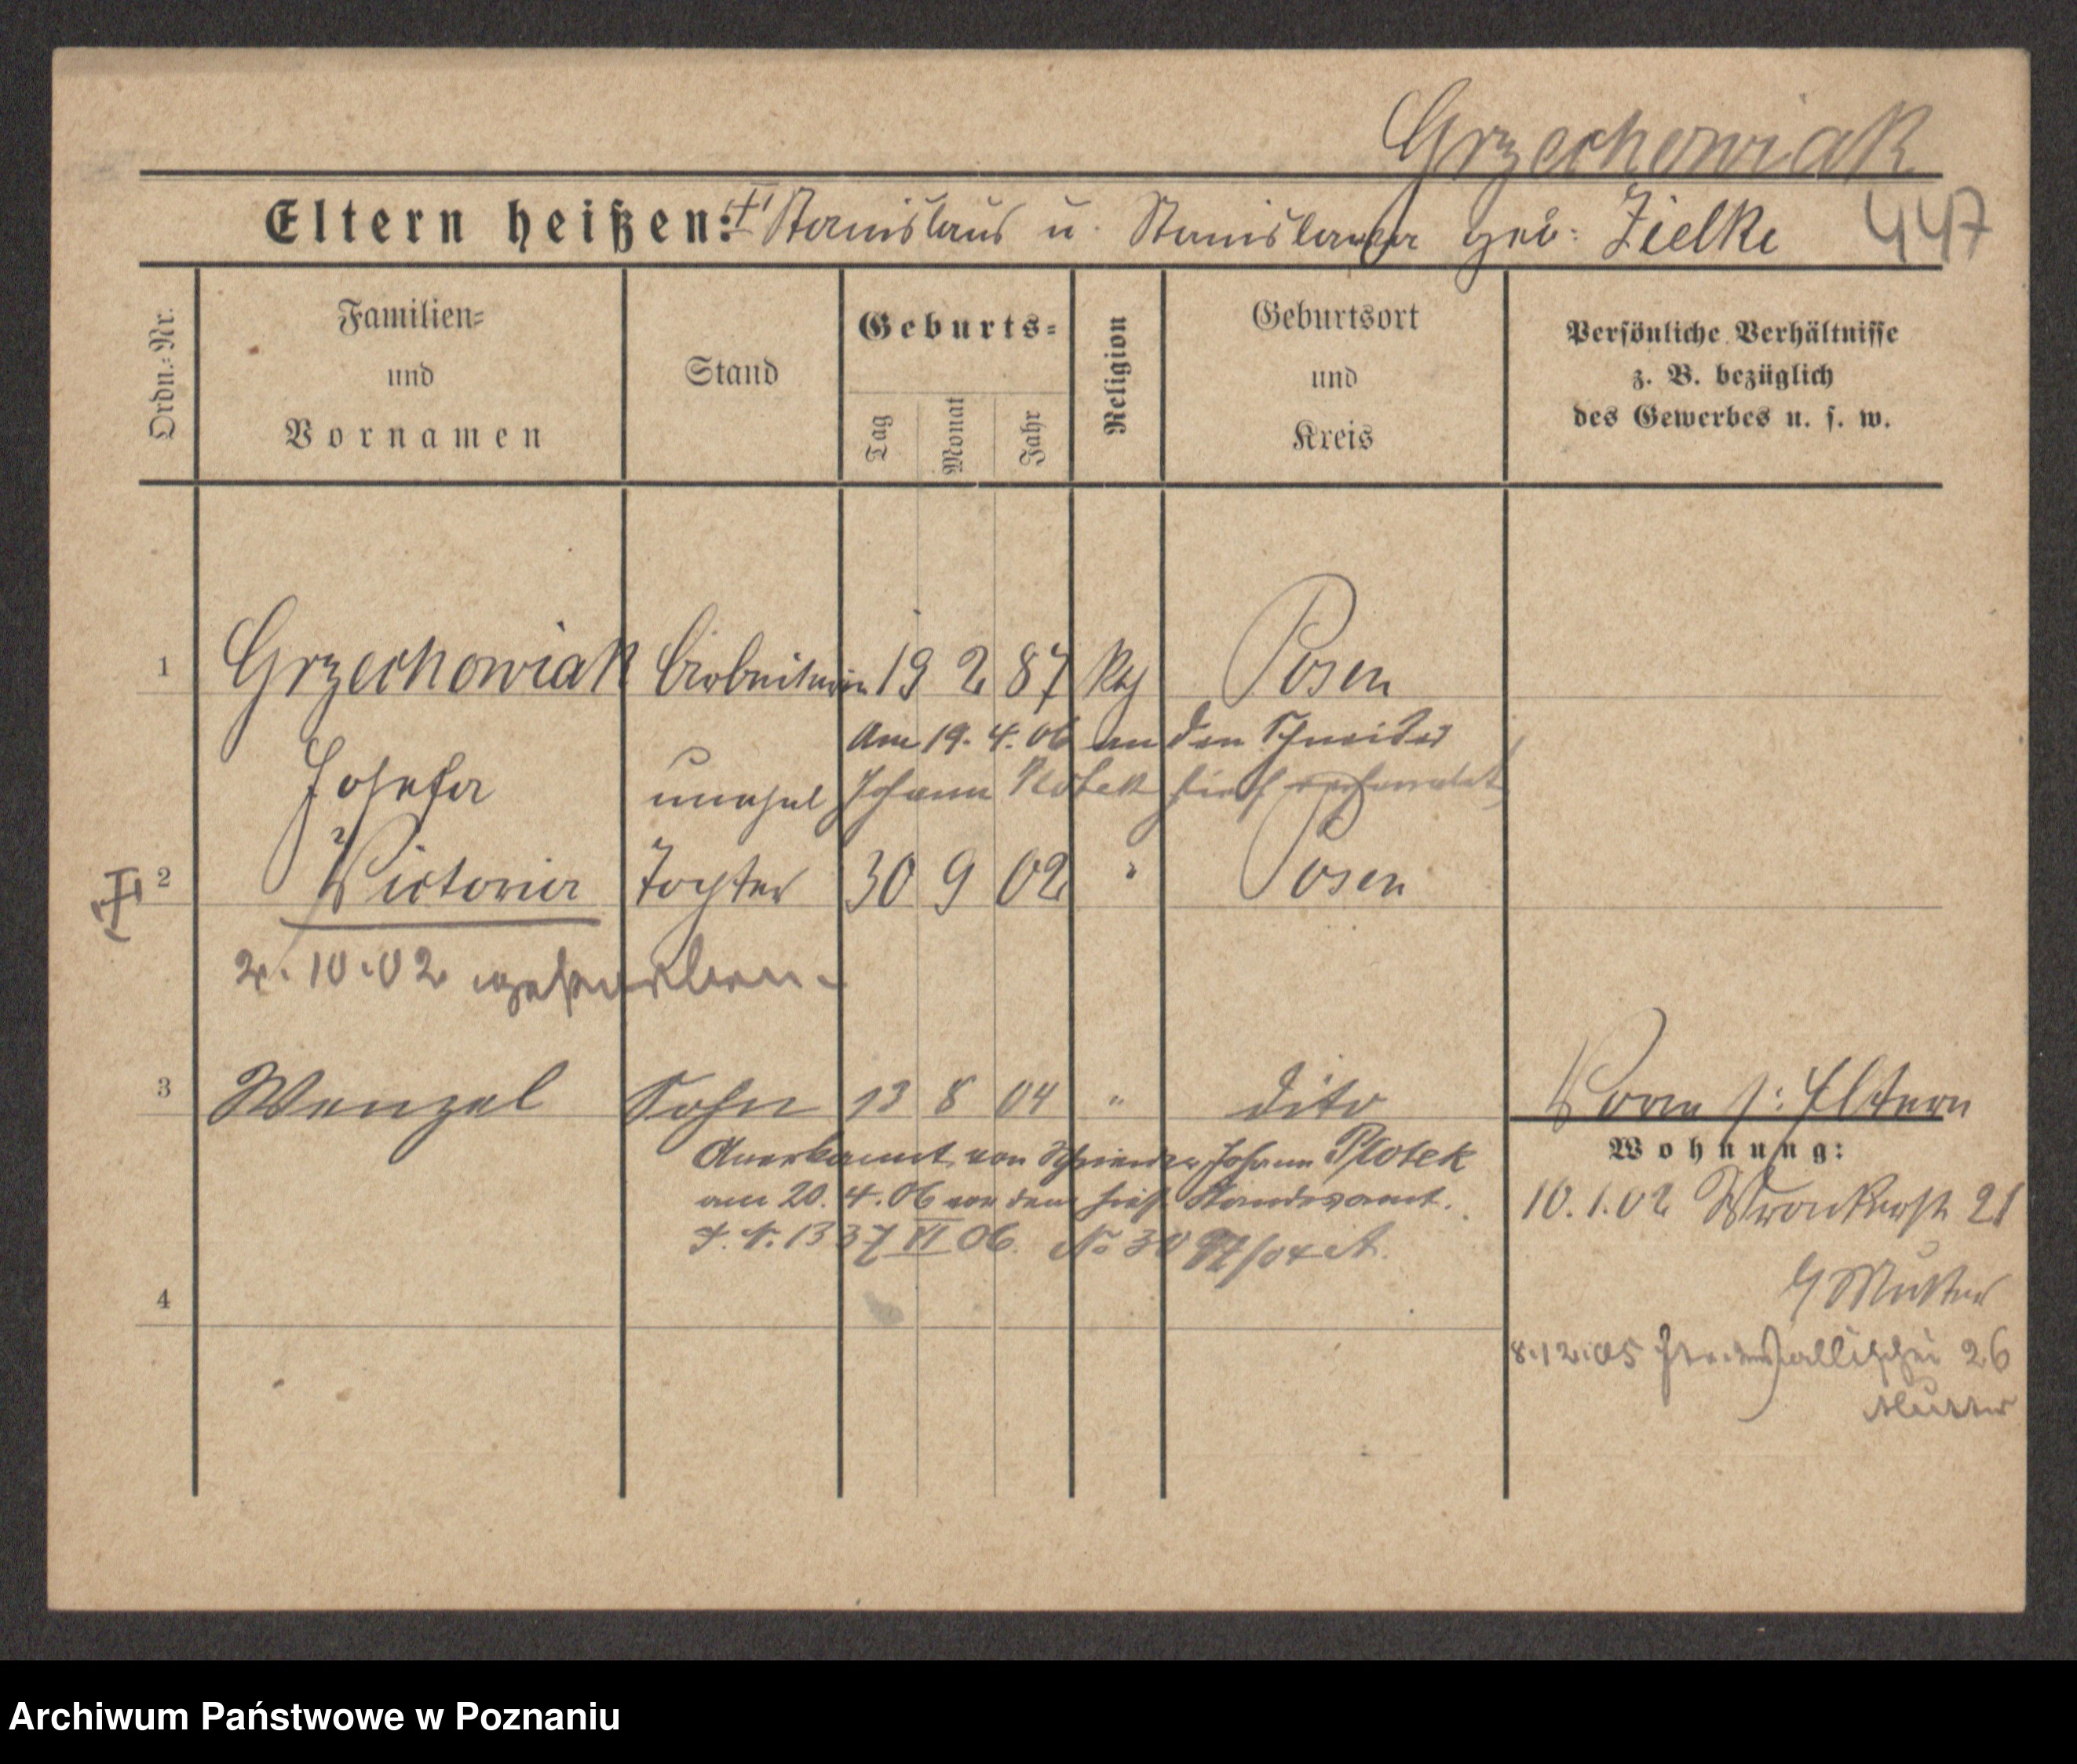 Grzechowiak
Eltern heißen: Stanislaus u. Stanislawa geb: Zielke 447
Ordn.-Nr.
Familien-
und
Vornamen
Stand
Geburts-
Tag
Monat
Jahr
Religion
Geburtsort
und
Kreis
Persönliche Verhältnisse
z. B. bezüglich
des Gewerbes u. s. w.
1 Grzechowiak Arbeiterin 19 2 87 kath Posen
Am 19. 4. 06 an den Schneider
Josefa unehel Johann Plotek hies. verheiratet
2 Victoria Tochter 30 9 02 " Posen
2. 10. 02 gestorben.
3 Wenzel Sohn 13 8 04 " dito
Vorm s: Eltern
Anerkannt von Johann Plotek
am 20. 4. 06 vor dem hies. Standesamt.
1337 VI 06. No
Wohnung:
10. 1. 02 Wronkerstr 21
Mutter
4
8. 12. 05 Wallischei 26
Mutter
Archiwum Państwowe w Poznaniu